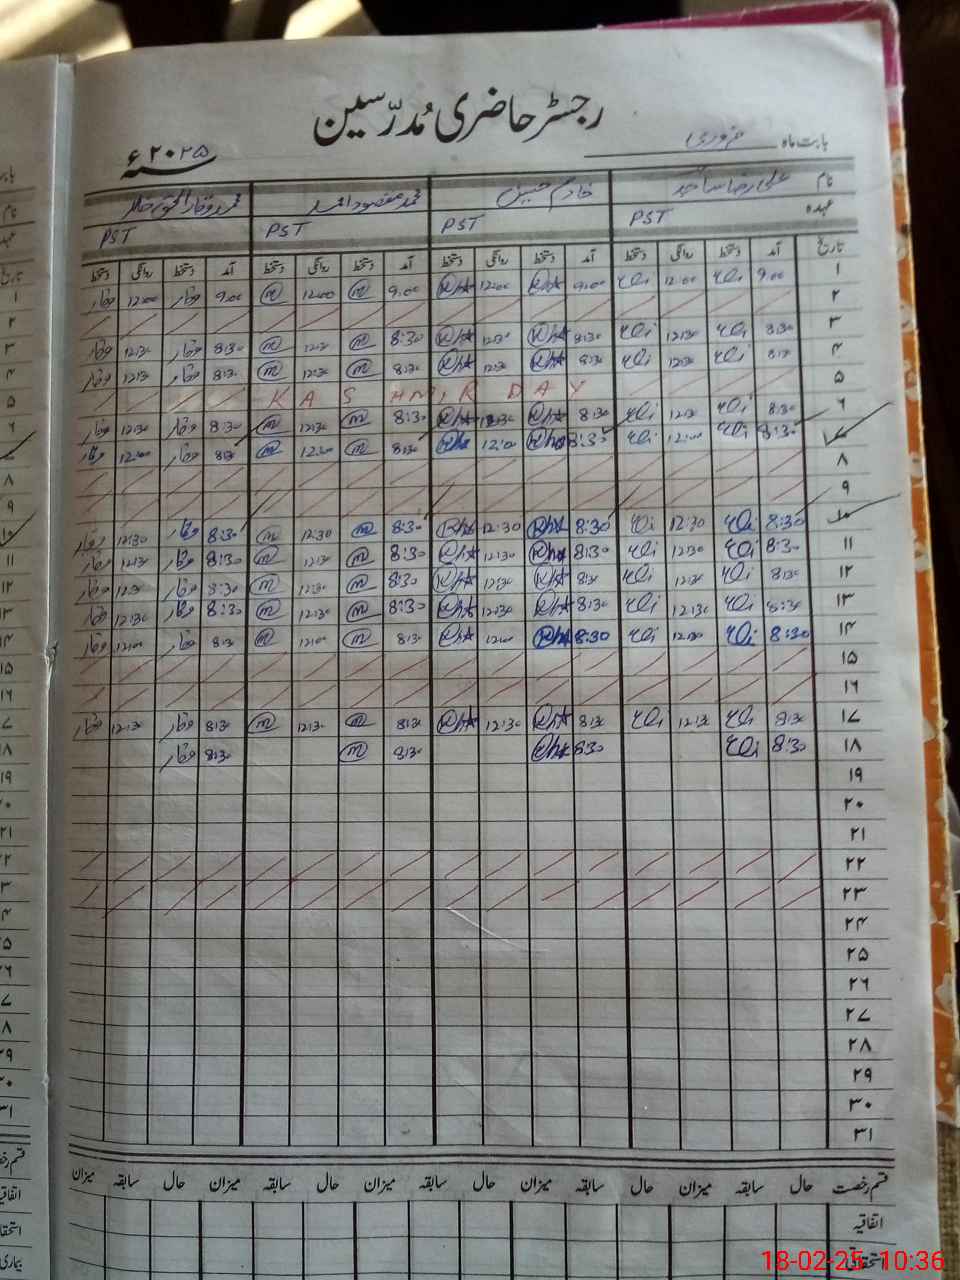 رجسٹر حاضری مُدرّسین
بابت ماہ فروری سنہ ۲۰۲۵ء
نام علی رضا ساجد خادم حسین محمد مقصود احمد
عہدہ PST PST PST PST
تاریخ آمد دستخط روانگی دستخط آمد دستخط روانگی دستخط آمد دستخط روانگی دستخط آمد دستخط روانگی دستخط
۱ 9:00 12:00 9:00 12:00 9:00 12:00 9:00 وقار 12:00 وقار
۲
۳ 8:30 12:30 8:30 12:30 8:30 12:30 8:30 وقار 12:30 وقار
۴ 8:30 12:30 8:30 12:30 8:30 12:30 8:30 وقار 12:30 وقار
۵ KASHMIR DAY
۶ 8:30 12:30 8:30 12:30 8:30 12:30 8:30 وقار 12:30 وقار
۷ 8:30 12:00 8:30 12:00 8:30 12:00 8:30 وقار 12:00 وقار
۸
۹
۱۰ 8:30 12:30 8:30 12:30 8:30 12:30 8:30 وقار 12:30 وقار
۱۱ 8:30 12:30 8:30 12:30 8:30 12:30 8:30 وقار 12:30 وقار
۱۲ 8:30 12:30 8:30 12:30 8:30 12:30 8:30 وقار 12:30 وقار
۱۳ 8:30 12:30 8:30 12:30 8:30 12:30 8:30 وقار 12:30 وقار
۱۴ 8:30 12:00 8:30 12:00 8:30 12:00 8:30 وقار 12:00 وقار
۱۵
۱۶
۱۷ 8:30 12:30 8:30 12:30 8:30 12:30 8:30 وقار 12:30 وقار
۱۸ 8:30 8:30 8:30 8:30 وقار
۱۹
۲۰
۲۱
۲۲
۲۳
۲۴
۲۵
۲۶
۲۷
۲۸
۲۹
۳۰
۳۱
قسم رخصت حال سابقہ میزان حال سابقہ میزان حال سابقہ میزان حال سابقہ میزان
اتفاقیہ
استحقاقی
18-02-25 10:36